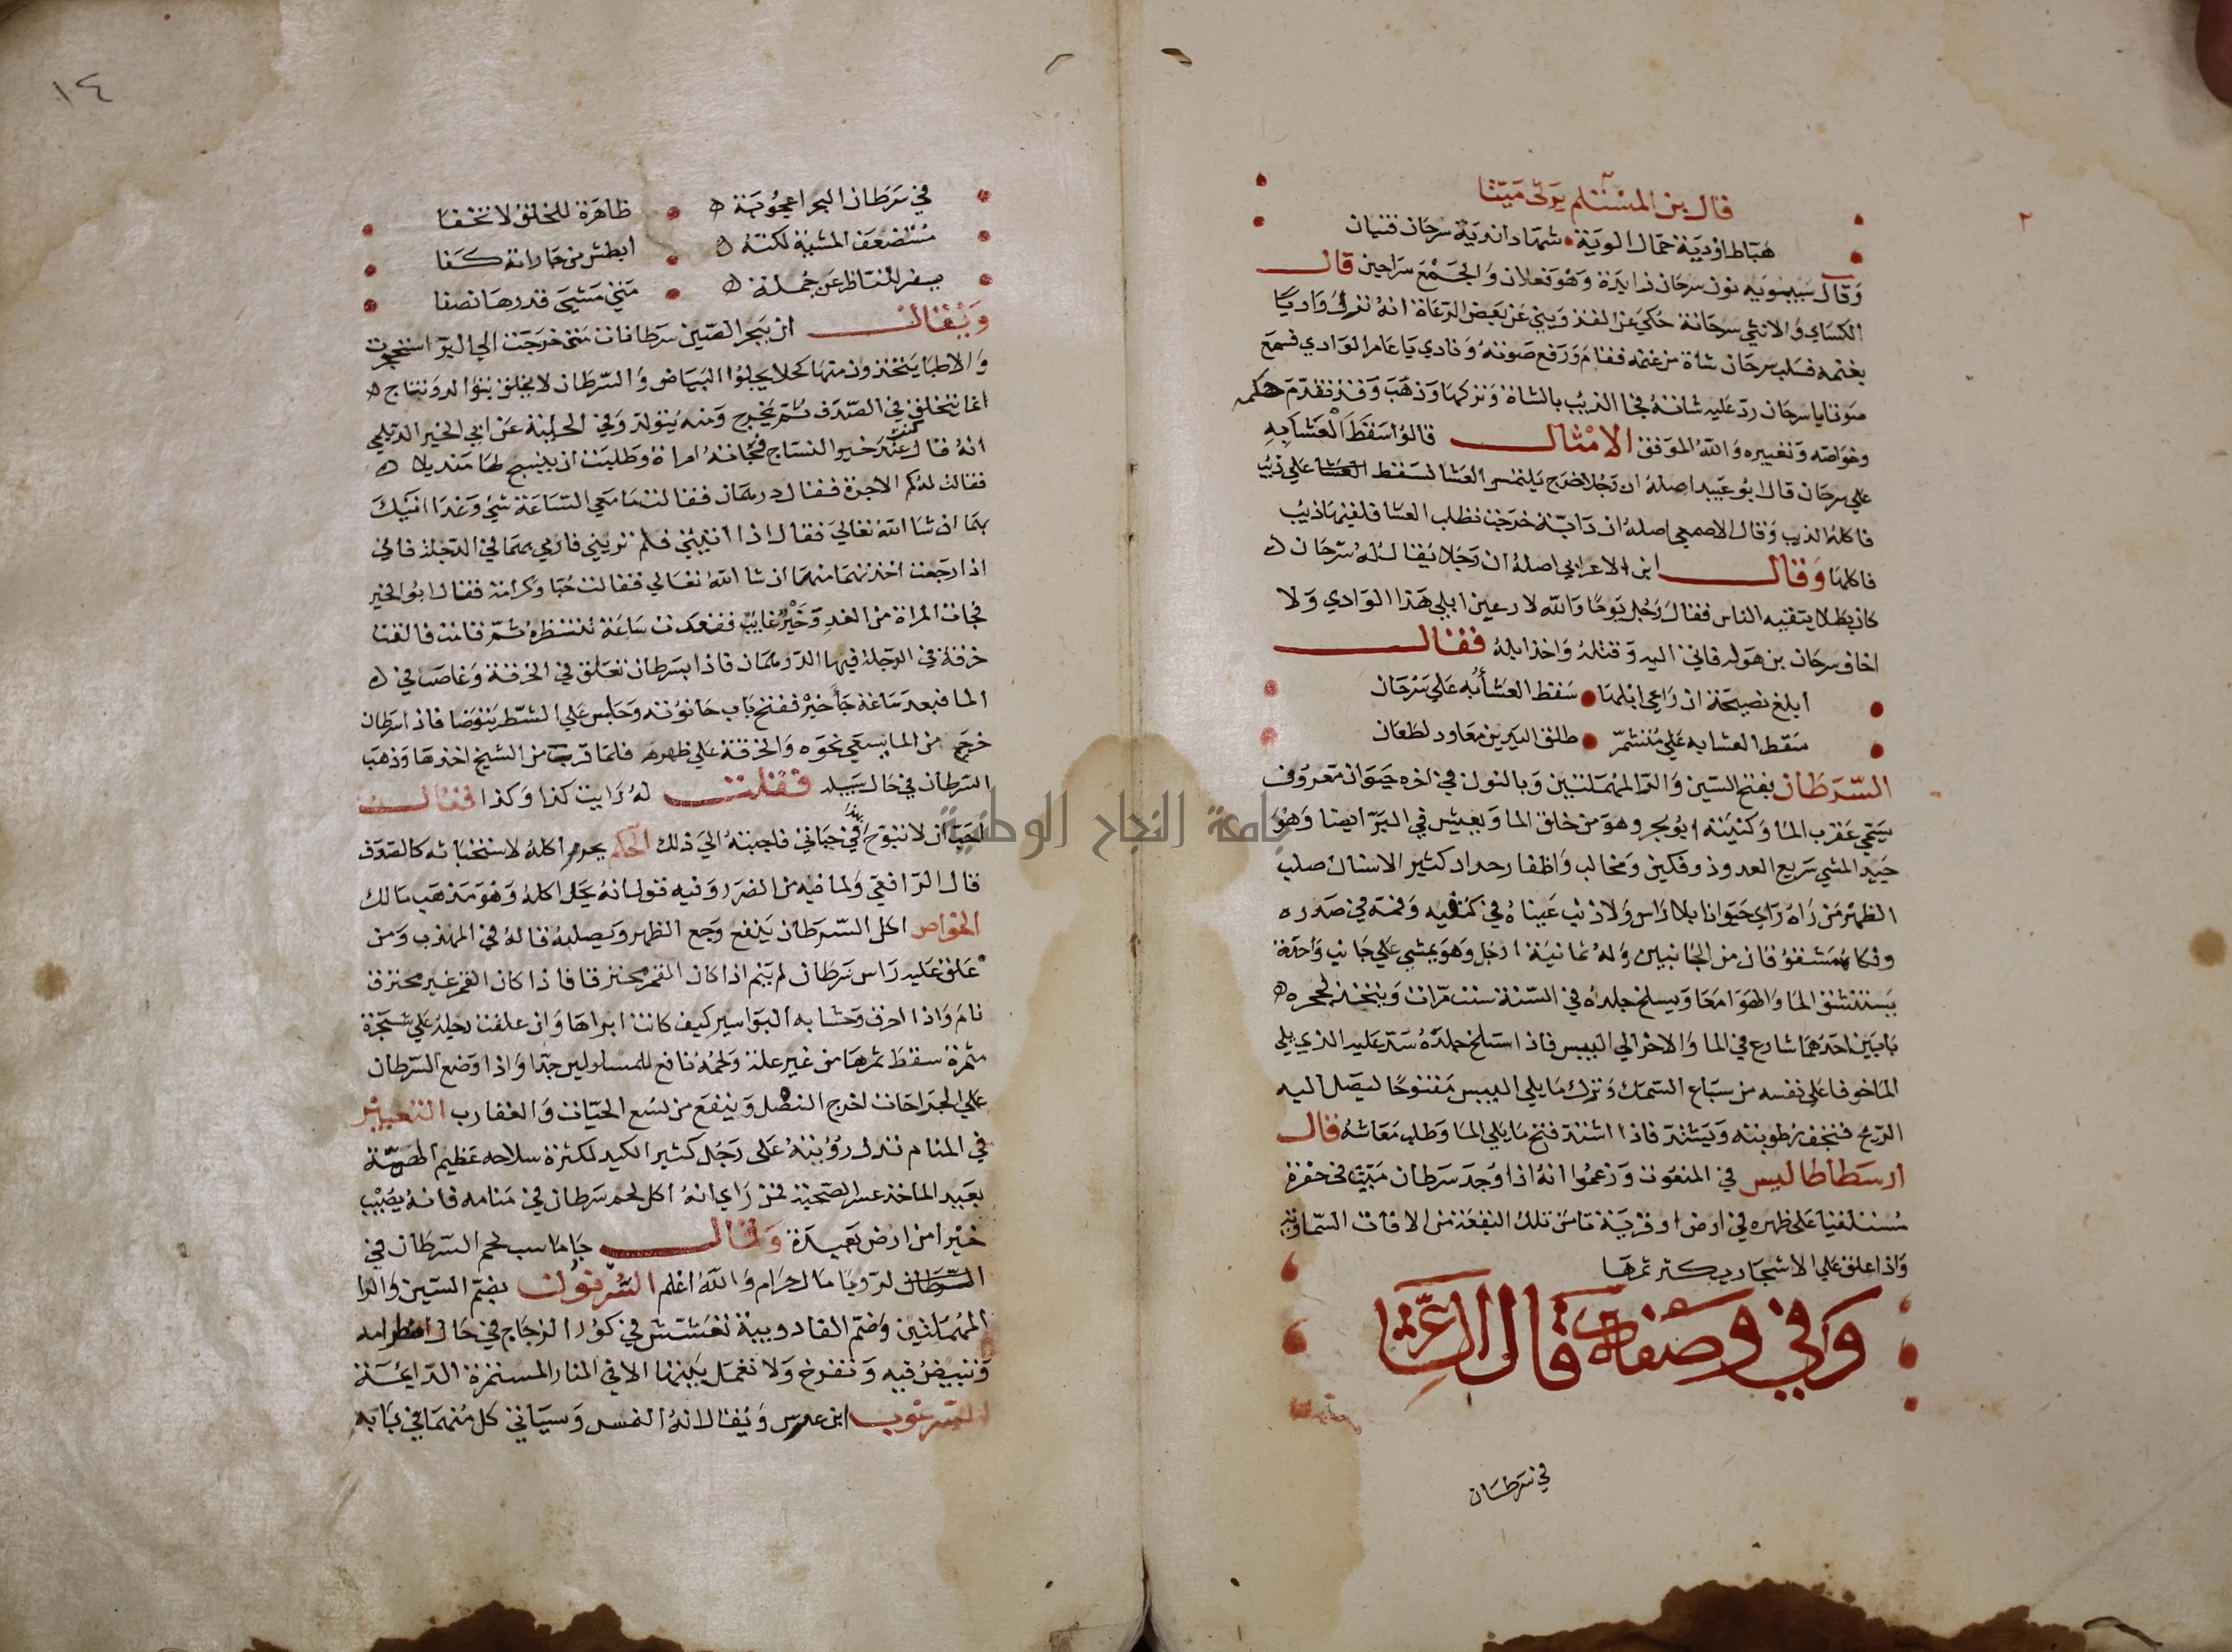 ٢
قال بن المسلم يرثى ميتا
هباط اودية حمال الوية شهاد اندية سرحان فتيان
وقال سيبويه نون سرحان زايدة وهو فعلان والجمع سراحين قال
الكساي والانثي سرحانة حكي عن القز ويني عن بعض الرعاة انه نزل واديا
بغنمه فسلب سرحان شاة من غنمه فقام ورفع صوته ونادي يا عامر الوادي فسمع
صوتا يا سرحان رد عليه شاته فجا الذيب بالشاة وتركها وذهب وقد تقدم حكمه
وخواصه وتعبيره والله الموفق الامثال قالوا سقط العشا به
علي سرحان قال ابو عبيد اصله ان رجلا خرج يلتمس العشا فسقط علي ذيب
فاكله الذيب وقال الاصمعي اصله ان دابة خرجت تطلب العشا فلقيها ذيب
فاكلها وقال ابن الاعرابي اصله ان رجلا يقال له سرحان
كان بطلا يتقيه الناس فقال رجل يوما والله لارعين ابلي هذا الوادي ولا
اخاف سرحان بن هوله فاتي اليه وقتله واخذ ابله فقال
ابلغ نصيحة ان راعي ابلها سقط العشا به علي سرحان
سقط العشا به علي متنمر طلق اليدين معاود لطعان
السرطان بفتح السين والرا المهملتين وبالنون في اخره حيوان معروف
يسمي عقرب الما وكنيته ابو بحر وهو من خلق الما ويعيش في البر ايضا وهو
جيد المشي سريع العدو ذو فكين ومخالب واظفار حداد كثير الاسنان صلب
الظهر من راه راي حيوانا بلا راس ولا ذنب عيناه في كتفيه وفمه في صدره
وفكاه مشقوقان من الجانبين وله ثمانية ارجل وهو يمشي علي جانب واحدة
يستنشق الما والهوا معا ويسلخ جلده في السنة ست مرات ويتخذ لجحره
بابين احدهما شارع في الما والاخر الي اليبس فاذا استلخ جلده سد عليه الذي يلي
الما خوفا على نفسه من سباع السمك وترك ما يلي اليبس مفتوحا ليصل اليه
الريح فتجف رطوبته ويشتد فاذا اشتد فتح ما يلي الما وطلب معاشه قال
ارسطاطاليس في النعوت وزعموا انه اذا وجد سرطان ميتا في حفرة
مستلقيا على ظهره في ارض او قرية تامن تلك البقعة من الافات السماوية
واذا علق علي الاشجار يكثر ثمرها
وفي وصفه قال الشاعر
في سرطان
١٤
في سرطان البحر اعجوبة ظاهرة للخلق لا تخفا
مستضعف المشية لكنه ابطش من جاراته كفا
يسفر للناظر عن جملة متي مشي قدرها نصفا
ويقال ان ببحر الصين سرطانات متي خرجت الي البر استحجرت
والاطبا يتخذون منها كحلا يجلوا البياض والسرطان لا يخلق بتوالد ونتاج
انما يتخلق في الصدف ثم يخرج ومنه يتولد وفي الحلية عن ابي الخير الديلمي
انه قال كنت عند خير النساج فجاته امراة وطلبت ان ينسج لها منديلا
فقالت له كم الاجرة فقال درهمان فقالت ما معي الساعة شي وغدا اتيك
بهما ان شا الله تعالي فقال اذا اتيتني فلم تريني فارمي بهما في الدجلة فاني
اذا رجعت اخذتهما منها ان شا الله تعالي فقالت حبا وكرامة فقال ابو الخير
فجات المراة من الغد وخير غايب فقعدت ساعة تنتظره ثم قامت فالقت
خرقة في الدجلة فيها الدرهمان فاذا بسرطان تعلق في الخرقة وغاص في
الما فبعد ساعة جا خير ففتح باب حانوته وجلس علي الشط يتوضا فاذا سرطان
خرج من الما يسعي نحوه والخرقة علي ظهره فلما قرب من الشيخ اخذها وذهب
السرطان في حال سبيله فقلت له رايت كذا وكذا فقال
احب ان لا تبوح به في حياتي فاجبته الي ذلك الحكم يحرم اكله لاستخباثه كالصدف
قال الرافعي ولما فيه من الضرر وفيه قول انه يحل اكله وهو مذهب مالك
الخواص اكل السرطان ينفع وجع الظهر ويصلبه قاله في المهذب ومن
علق عليه راس سرطان لم ينم اذا كان القمر محترقا فاذا كان القمر غير محترق
نام واذا احرق وحشا به البواسير كيف كانت ابراها وان علقت رجله علي شجرة
مثمرة سقط ثمرها من غير علة ولحمه نافع للمسلولين جدا واذا وضع السرطان
علي الجراحات اخرج النصل وينفع من لسع الحيات والعقارب التعبير
في المنام تدل رؤيته على رجل كثير الكيد لكثرة سلاحه عظيم الهمة
بعيد الماخذ عسر الصحبة فمن راي انه اكل لحم سرطان في منامه فانه يصيب
خيرا من ارض بعيدة وقال جاماسب لحم السرطان في
الرويا مال حرام والله اعلم السرفوت بضم السين والرا
المهملتين وضم الفا دويبة تعشش في كور الزجاج في حال اضطرامه
وتبيض فيه وتفرخ ولا تعمل بيتها الا في النار المستمرة الدايمة
السرعوب ابن عرس ويقال انه النمس وسياتي كل منهما في بابه
جامعة النجاح الوطنية